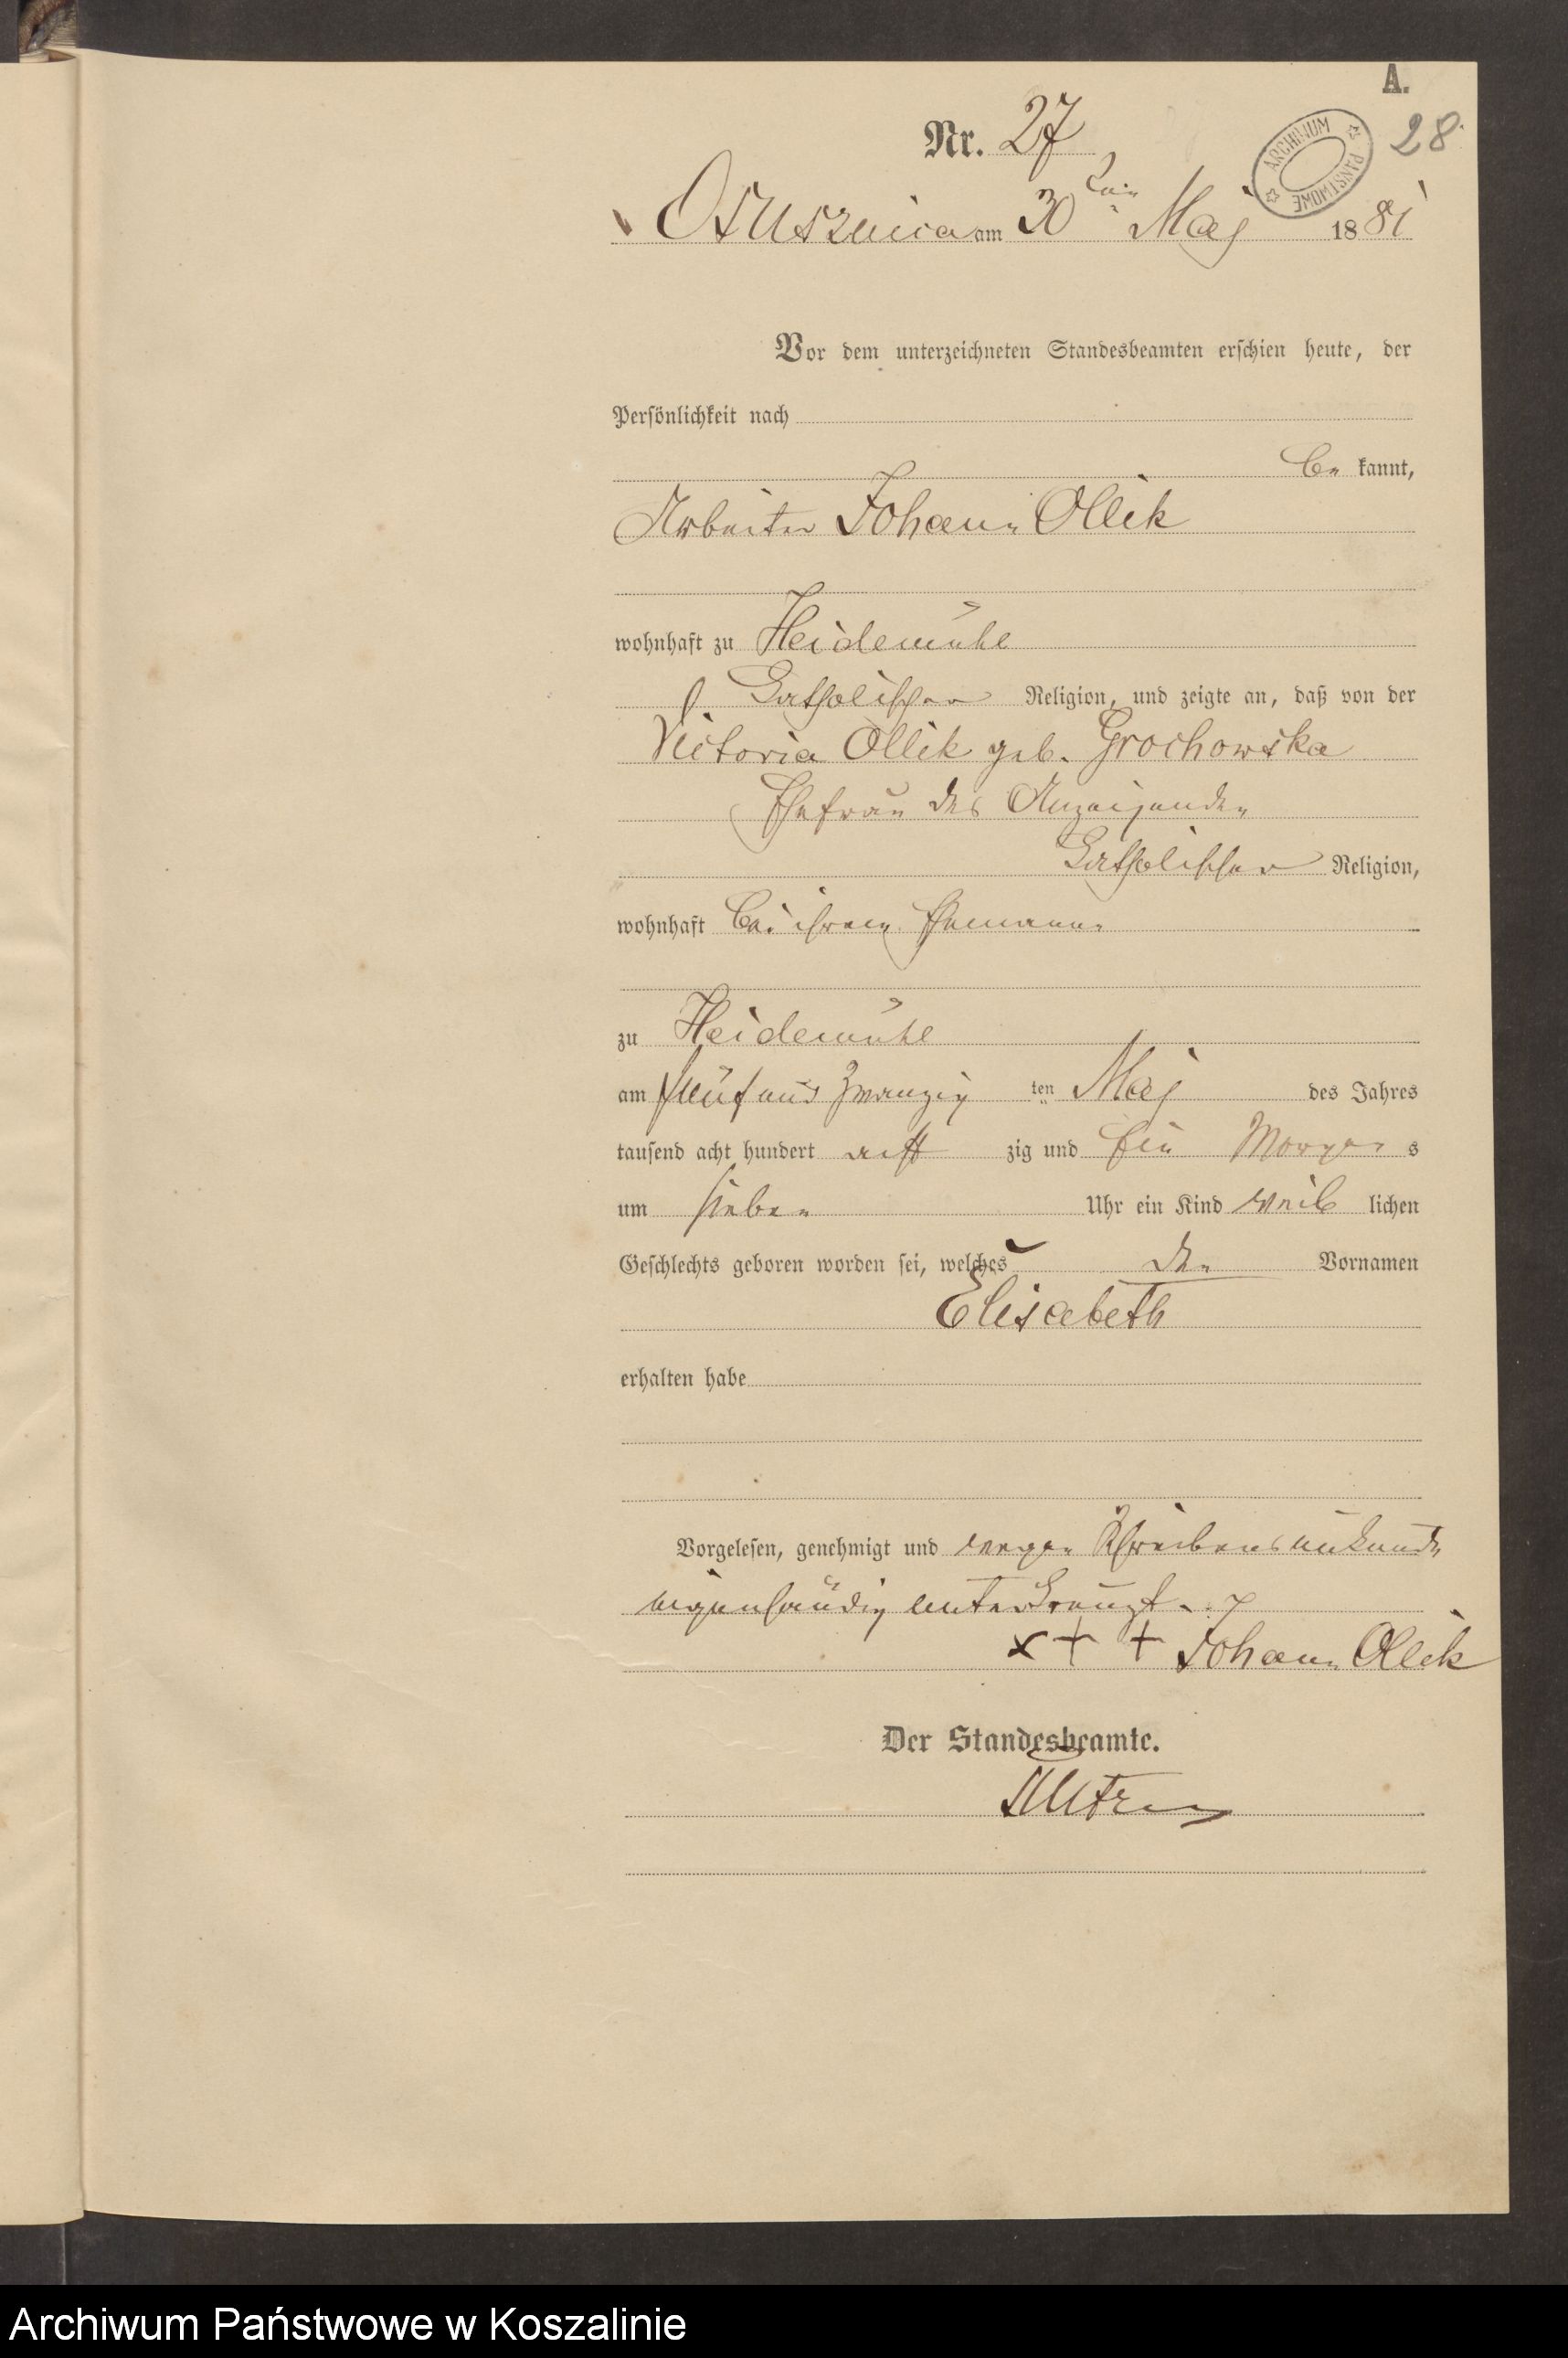 A.
Nr. 27
28
ARCHIWUM PAŃSTWOWE
Ossusznica am 30ten Maj 1881
Vor dem unterzeichneten Standesbeamten erschien heute, der
Persönlichkeit nach
be kannt,
Arbeiter Johann Ollik
wohnhaft zu Heidemühl
katholischer Religion, und zeigte an, daß von der
Victoria Ollik geb. Grochowska
Ehefrau des Anzeigenden
katholischer Religion,
wohnhaft bei ihrem Ehemann
zu Heidemühl
am fünf und zwanzig ten Maj des Jahres
tausend acht hundert acht zig und ein Morgen s
um sieben Uhr ein Kind weib lichen
Geschlechts geboren worden sei, welches den Vornamen
Elisabeth
erhalten habe
Vorgelesen, genehmigt und wegen Schreibensunkunde
eigenhändig unterkreuzt.
x + + Johann Ollik
Der Standesbeamte.
Archiwum Państwowe w Koszalinie